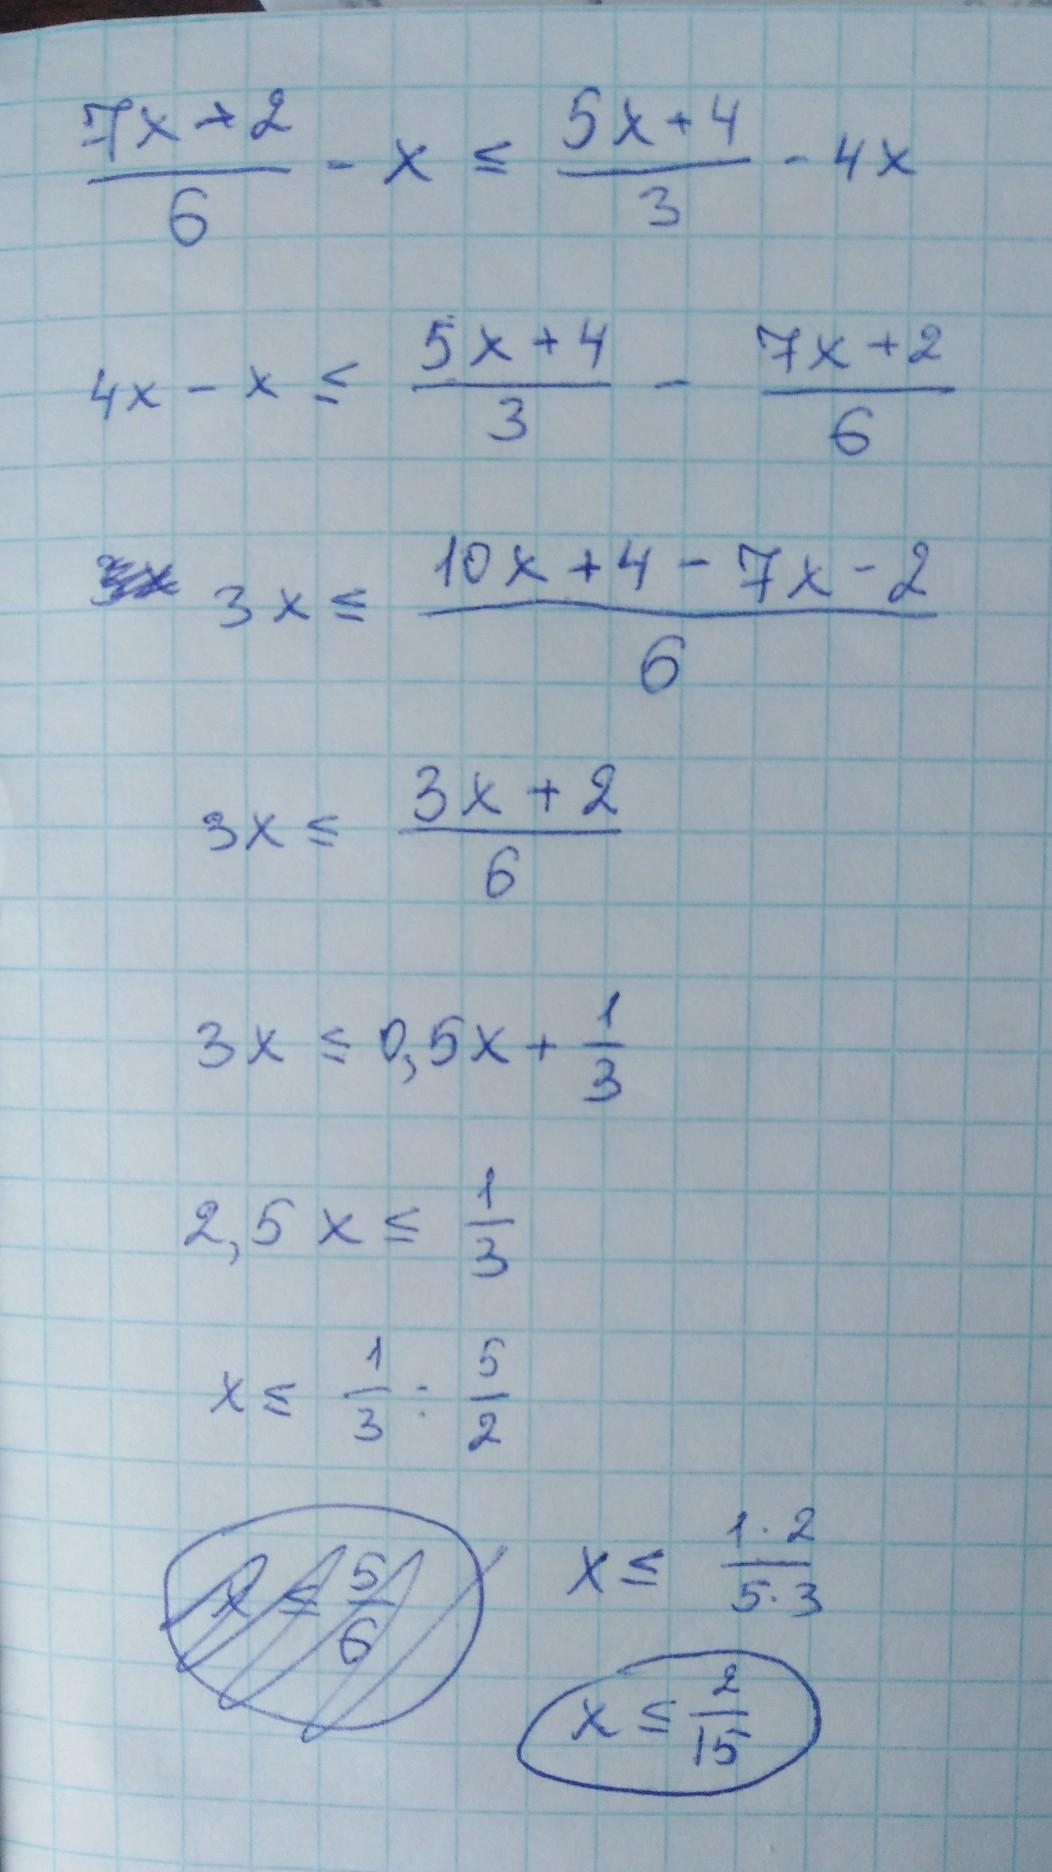 (7x+2)/6 - x ≤ (5x+4)/3 - 4x
4x - x ≤ (5x+4)/3 - (7x+2)/6
3x 3x ≤ (10x+4-7x-2)/6
3x ≤ (3x+2)/6
3x ≤ 0,5x + 1/3
2,5x ≤ 1/3
x ≤ 1/3 : 5/2
x ≤ 5/6
x ≤ (1·2)/(5·3)
x ≤ 2/15